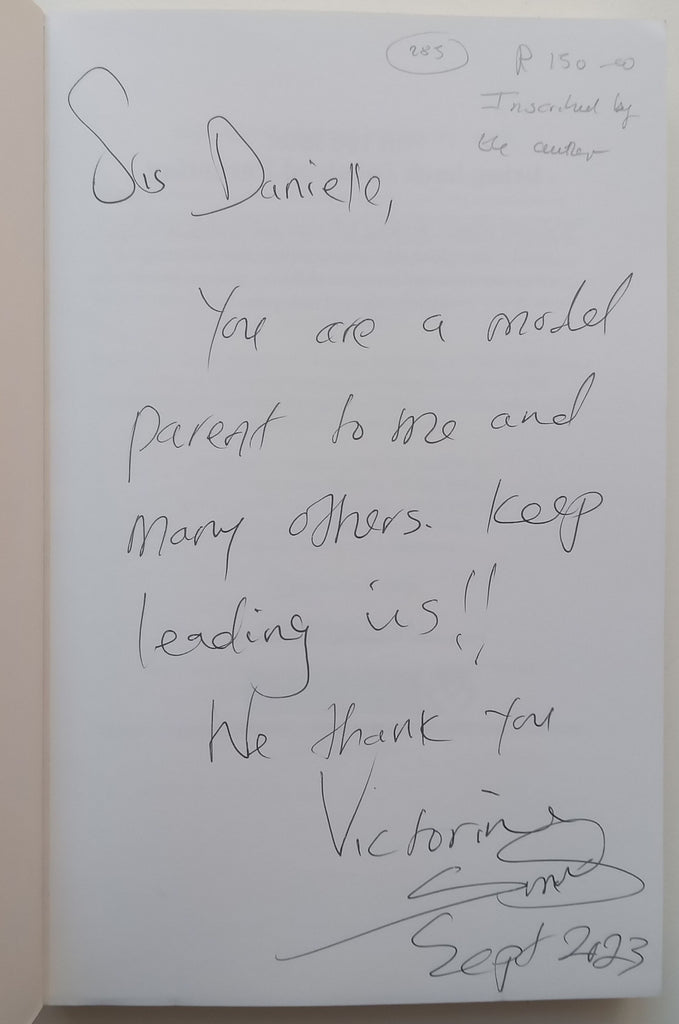 285
R 150-00
Inscribed by
the author
Sis Danielle,
You are a model
parent to me and
many others. Keep
leading us!!
We thank you
Victorine
Sept 2023